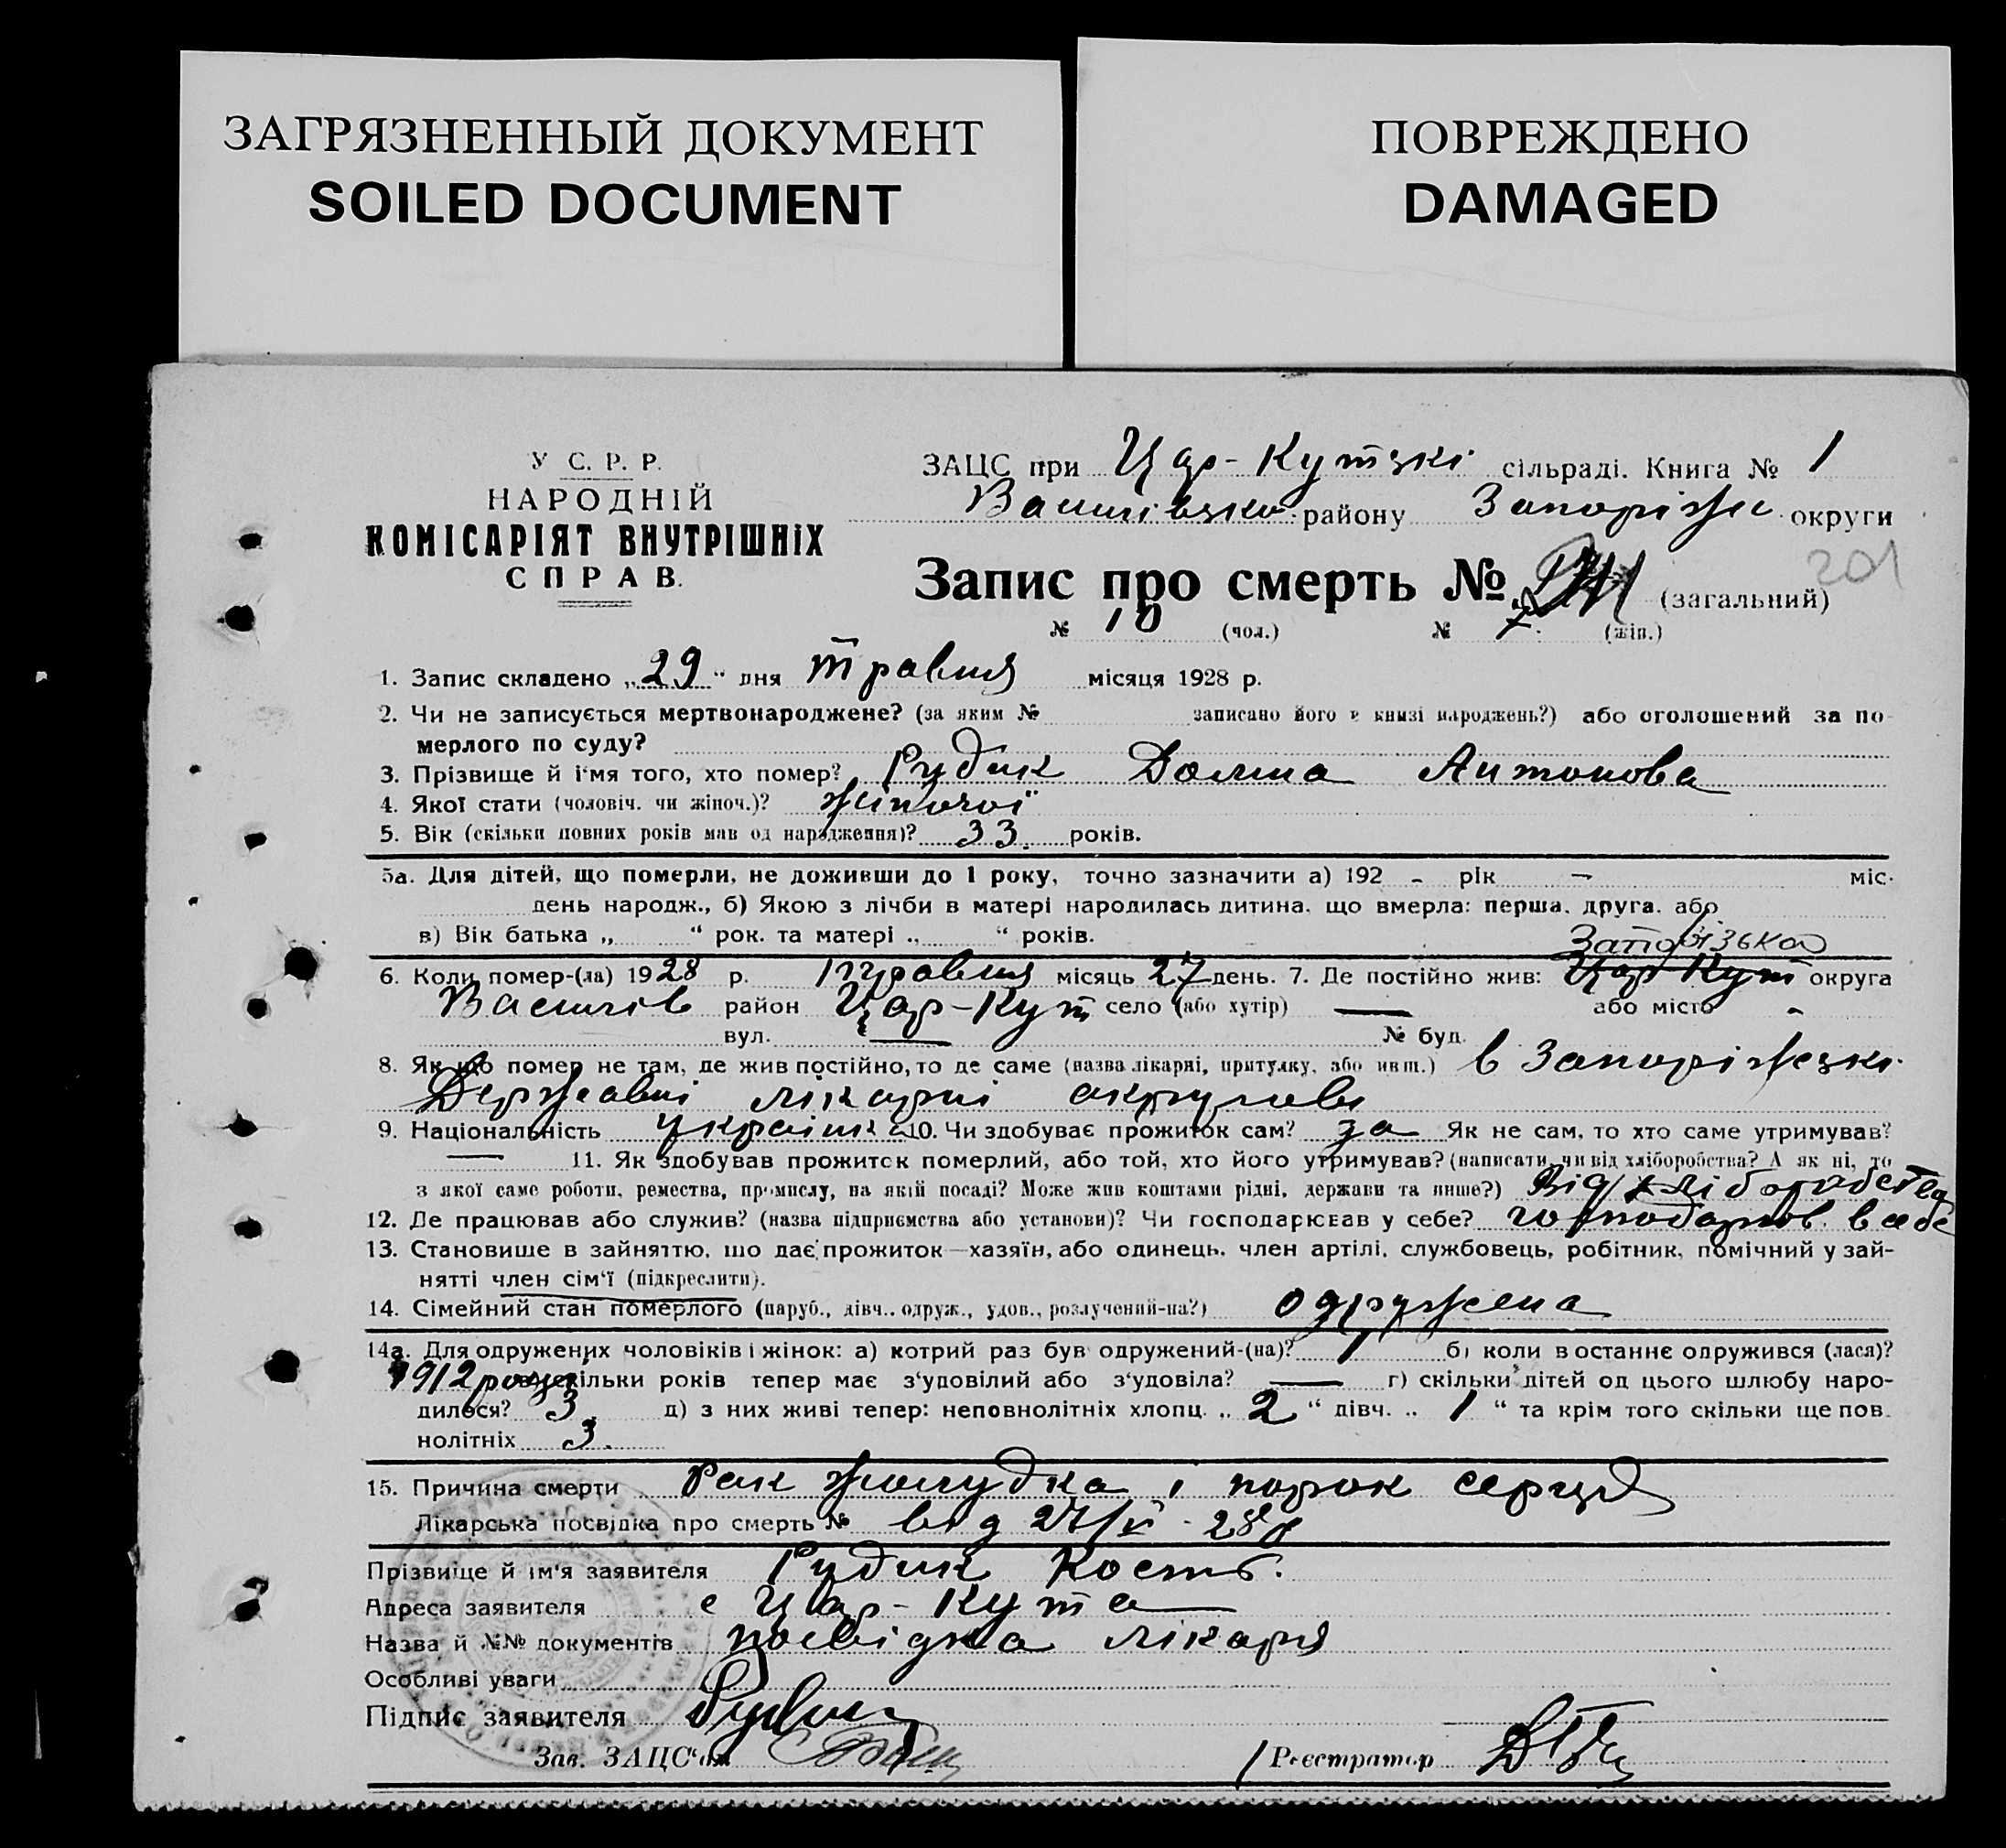 ЗАГРЯЗНЕННЫЙ ДОКУМЕНТ
SOILED DOCUMENT
ПОВРЕЖДЕНО
DAMAGED
У С. Р. Р.
НАРОДНІЙ
КОМІСАРІЯТ ВНУТРІШНІХ
СПРАВ.
ЗАЦС при Цар-Кутскі сільраді. Книга № 1
району Запоріжс округи
Запис про смерть № (загальний) 201
№ 10 (чол.) № 7. (жін.)
1. Запис складено „29" дня травня місяця 1928 р.
2. Чи не записується мертвонароджене? (за яким № записано його в книзі народжень?) або оголошений за по-
мерлого по суду?
3. Прізвище й і'мя того, хто помер? Рудик Домна Антонова
4. Якої стати (чоловіч. чи жіноч.)? жіночої
5. Вік (скільки повних років мав од народження)? 33 років.
5а. Для дітей, що померли, не доживши до 1 року, точно зазначити а) 192 - рік — міс.
день народж., б) Якою з лічби в матері народилась дитина, що вмерла: перша, друга, або
в) Вік батька „ " рок. та матері „ " років.
Запорізька
6. Коли помер-(ла) 1928 р. травня місяць 27 день. 7. Де постійно жив: Цар-Кут округа
Василів район Цар-Кут село (або хутір) — або місто -
вул. — № буд.
8. Як що помер не там, де жив постійно, то де саме (назва лікарні, притулку, або инш.) в Запоріжескі
Державні лікарні
9. Національність українка 10. Чи здобуває прожиток сам? за Як не сам, то хто саме утримував?
— 11. Як здобував прожиток померлий, або той, хто його утримував? (написати, чи від хліборобства? А як ні, то
з якої саме роботи, ремества, промислу, на якій посаді? Може жив коштами рідні, держави та инше?) Від хліборобства
12. Де працював або служив? (назва підприємства або установи)? Чи господарював у себе? господарюв. в себе
13. Становище в зайняттю, що дає прожиток—хазяїн, або одинець, член артілі, службовець, робітник, помічний у зай-
нятті член сім'ї (підкреслити).
14. Сімейний стан померлого (паруб., дівч., одруж., удов., розлучений-на?) одружена
14а. Для одружених чоловіків і жінок: а) котрий раз був одружений-(на)? 1 б) коли в останнє одружився (лася)?
1912 році скільки років тепер має з'удовілий або з'удовіла? — г) скільки дітей од цього шлюбу наро-
дилося? 3 д) з них живі тепер: неповнолітніх хлопц. „ 2 " дівч. „ 1 " та крім того скільки ще пов-
нолітніх 3.
15. Причина смерти Рак жолудка і порок серця
Лікарська посвідка про смерть № від 27/V - 28 р
Прізвище й ім'я заявителя Рудик Кость.
Адреса заявителя с Цар-Кута
Назва й №№ документів посвідка лікаря
Особливі уваги
Підпис заявителя Рудик
Зав. ЗАЦС'ом Реєстратор